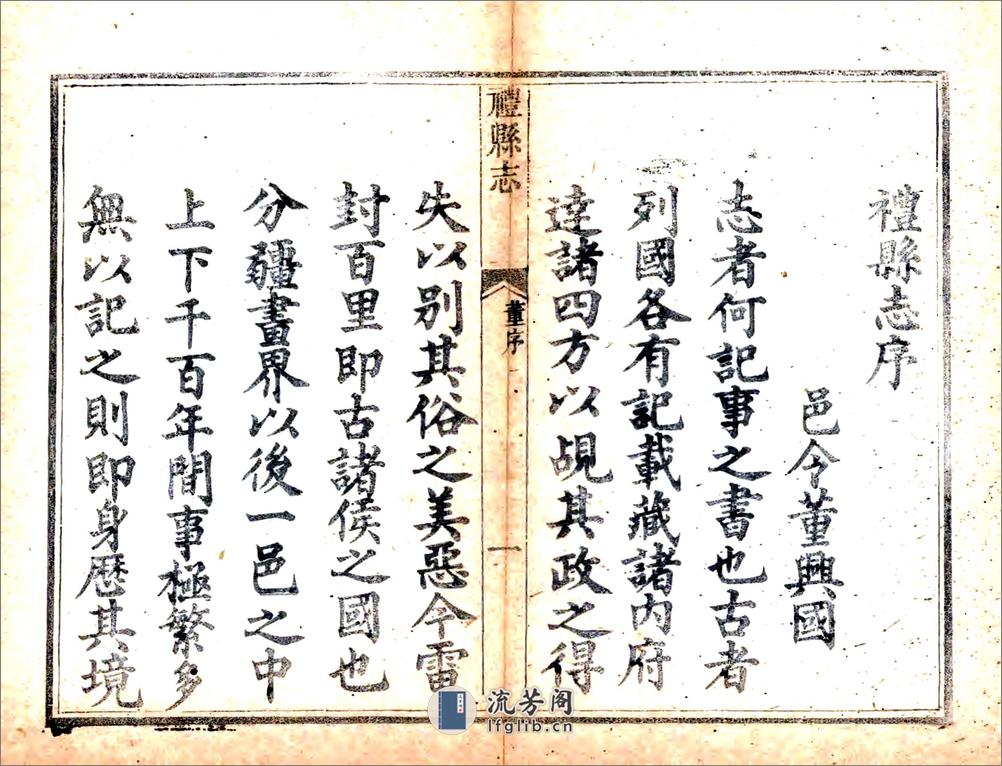 禮縣志序
邑令董興國
志者何記事之書也古者
列國各有記載藏諸內府
達諸四方以覘其政之得
禮縣志
董序
一
失以別其俗之美惡今雷
封百里即古諸侯之國也
分疆畫界以後一邑之中
上下千百年間事極繁多
無以記之則即身歷其境
流芳阁
lfglib.cn